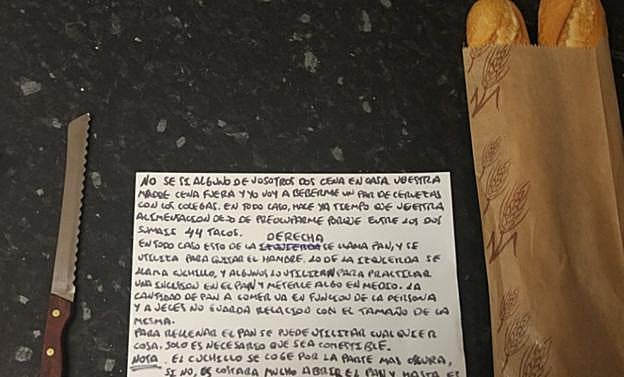 NO SE SI ALGUNO DE VOSOTROS DOS CENA EN CASA. VUESTRA
MADRE CENA FUERA Y YO VOY A BEBERME UN PAR DE CERVEZAS
CON LOS COLEGAS. EN TODO CASO, HACE YA TIEMPO QUE VUESTRA
ALIMENTACION DEJO DE PREOCUPARME PORQUE ENTRE LOS DOS
SUMAIS 44 TACOS.
DERECHA
EN TODO CASO ESTO DE LA IZQUIERDA SE LLAMA PAN, Y SE
UTILIZA PARA QUITAR EL HAMBRE. LO DE LA IZQUIERDA SE
LLAMA CUCHILLO, Y ALGUNOS LO UTILIZAN PARA PRACTICAR
UNA INCISION EN EL PAN Y METERLE ALGO EN MEDIO. LA
CANTIDAD DE PAN A COMER VA EN FUNCION DE LA PERSONA
Y A VECES NO GUARDA RELACION CON EL TAMAÑO DE LA
MISMA.
PARA RELLENAR EL PAN SE PUEDE UTILIZAR CUALQUIER
COSA, SOLO ES NECESARIO QUE SEA COMESTIBLE.
NOTA. EL CUCHILLO SE COGE POR LA PARTE MAS OSCURA,
SI NO, OS COSTARA MUCHO ABRIR EL PAN Y HASTA ES